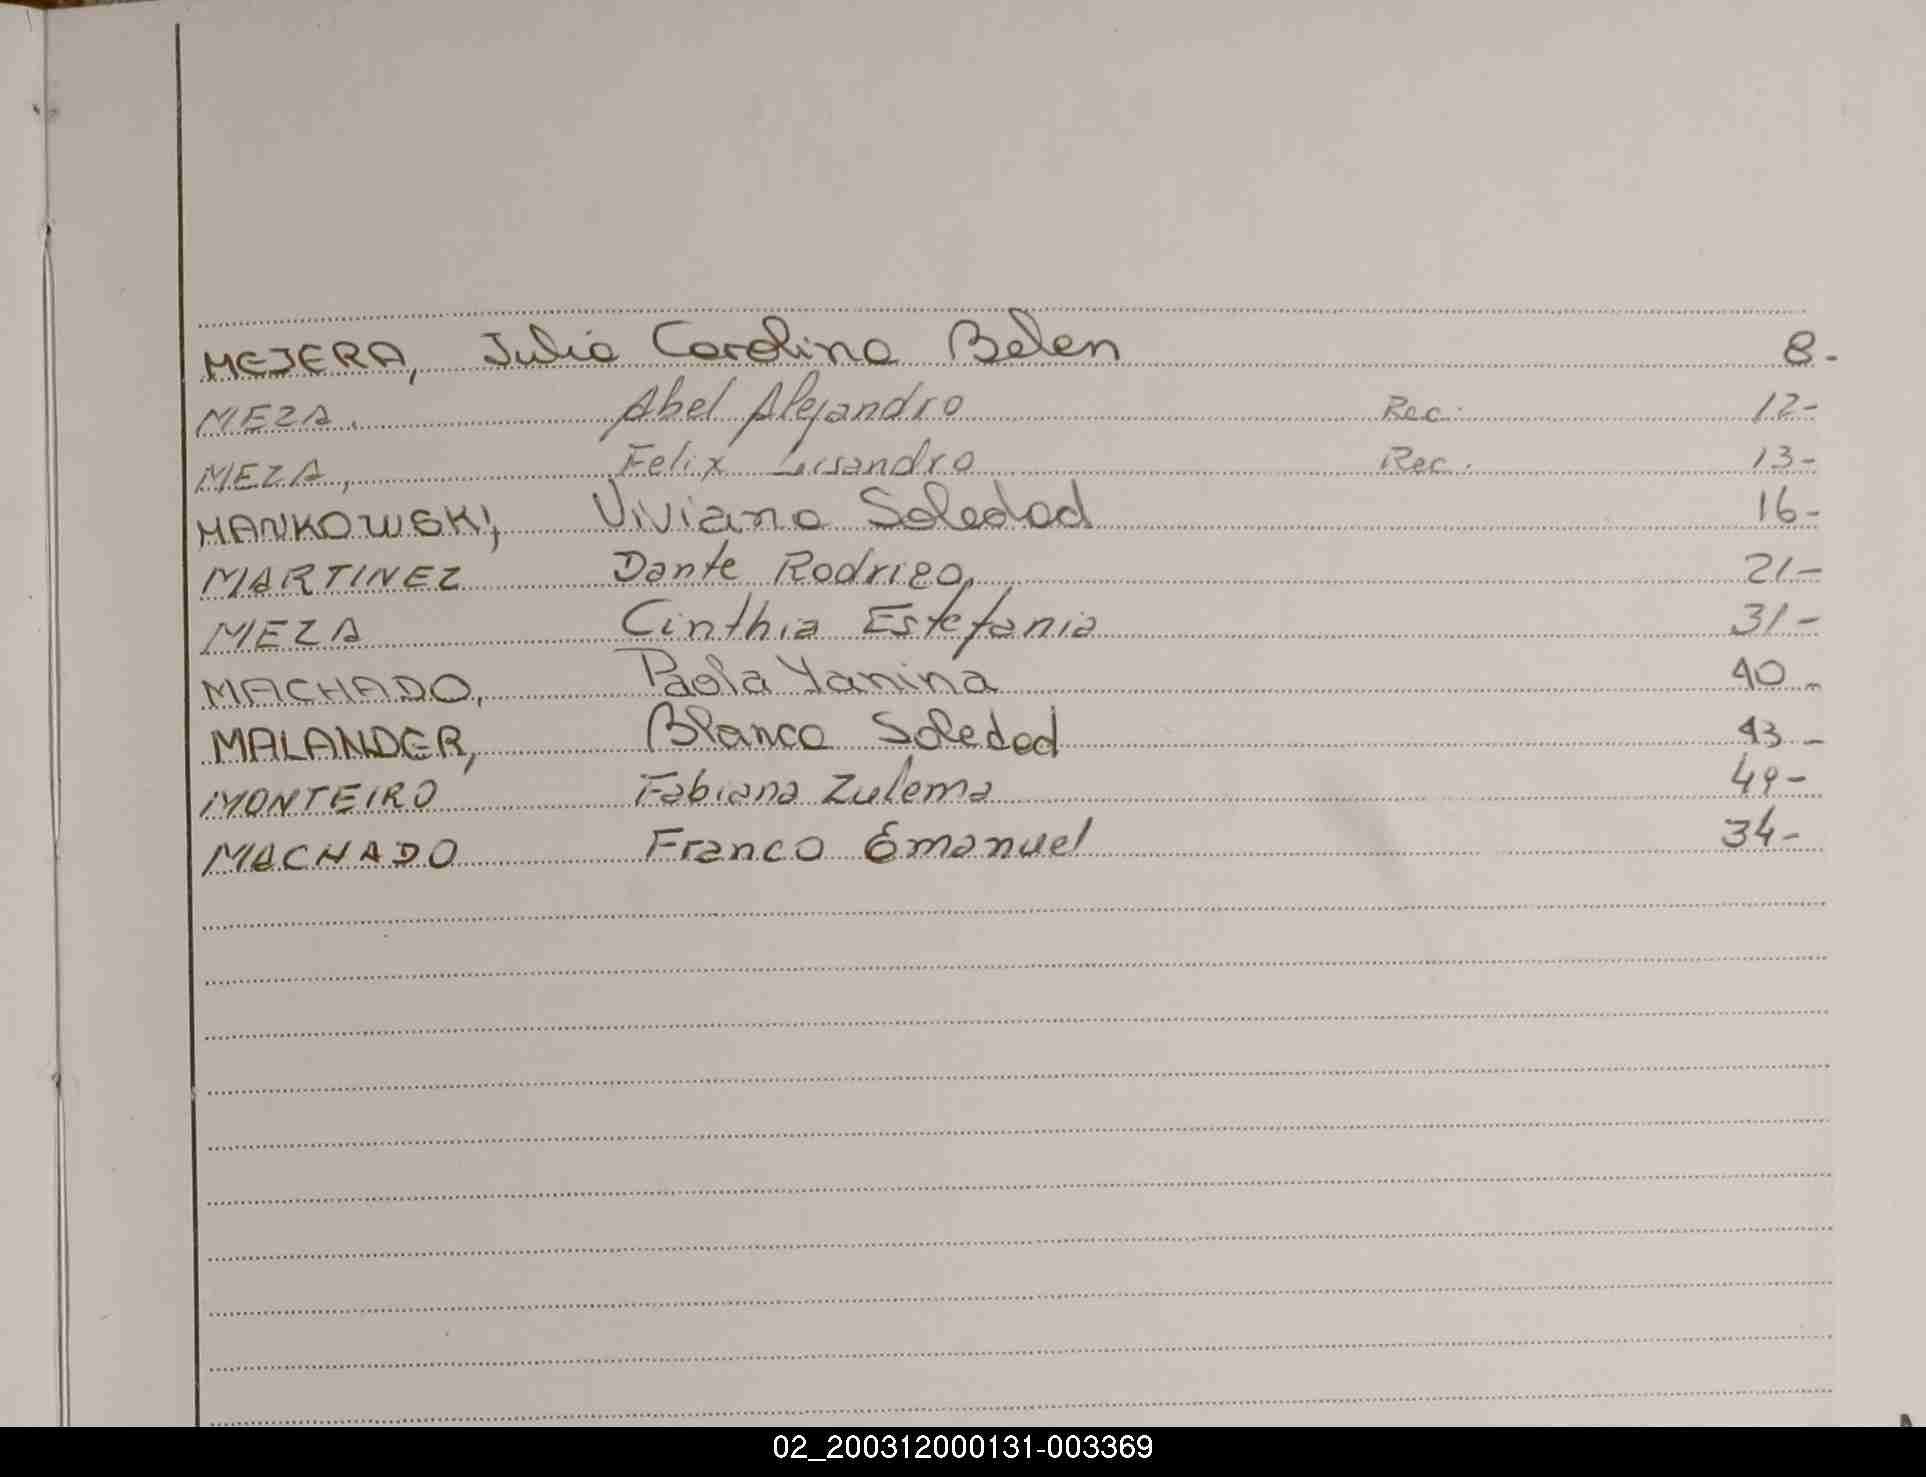 MEJERA, Julia Carolina Belen 8-
MEZA, Abel Alejandro Rec. 12-
MEZA, Felix Lisandro Rec. 13-
MANKOWSKI, Viviana Soledad 16-
MARTINEZ Dante Rodrigo, 21-
MEZA Cinthia Estefania 31-
MACHADO, Paola Yanina 40-
MALANDER, Blanca Soledad 43-
MONTEIRO Fabiana Zulema 49-
MACHADO Franco Emanuel 34-
02_200312000131-003369